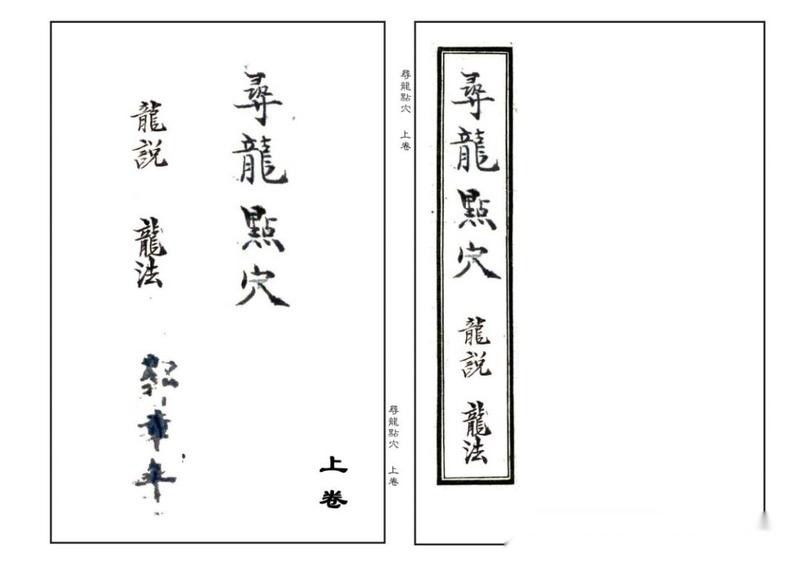 尋龍點穴 龍説 龍法
尋龍點穴 上卷
尋龍點穴 上卷
尋龍點穴
龍説 龍法
上卷